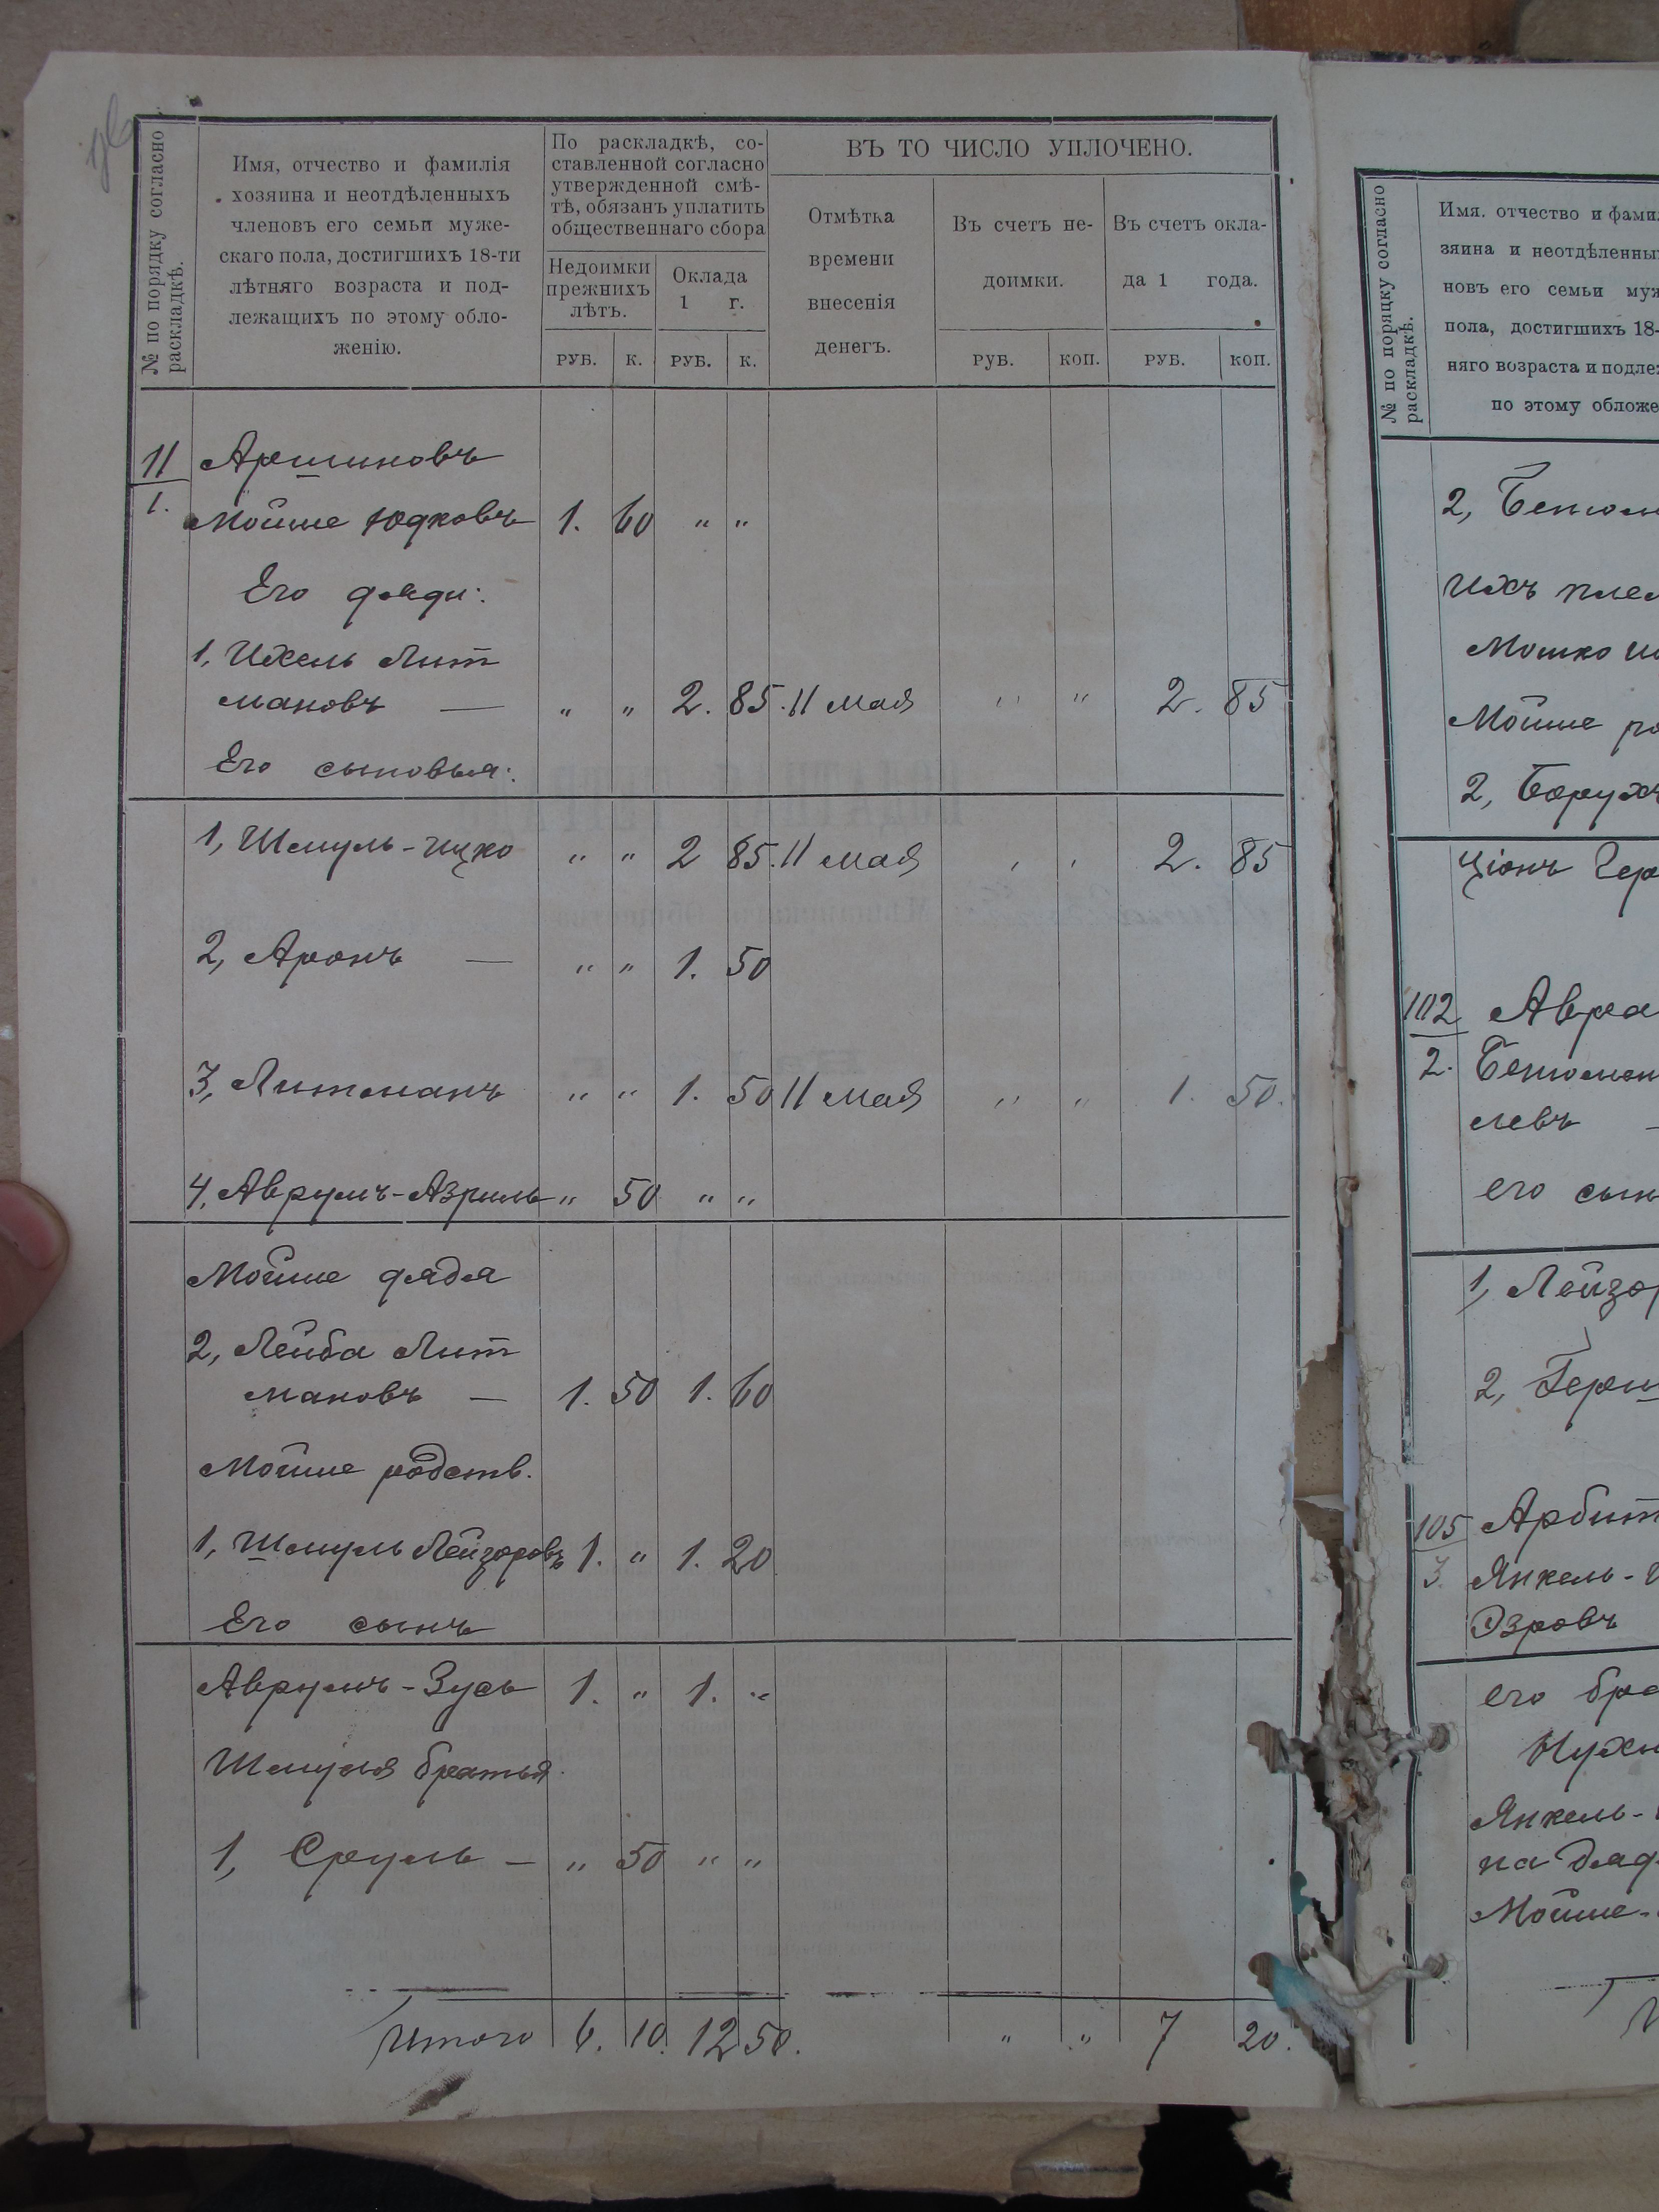 № по порядку согласно
раскладкѣ.
Имя, отчество и фамилія
хозяина и неотдѣленныхъ
членовъ его семьи муже-
скаго пола, достигшихъ 18-ти
лѣтняго возраста и под-
лежащихъ по этому обло-
женію.
По раскладкѣ, со-
ставленной согласно
утвержденной смѣ-
тѣ, обязанъ уплатить
общественнаго сбора
Недоимки
прежнихъ
лѣтъ.
Оклада
1 г.
РУБ. К. РУБ. К.
ВЪ ТО ЧИСЛО УПЛОЧЕНО.
Отмѣтка
времени
внесенія
денегъ.
Въ счетъ не-
доимки.
РУБ. КОП.
Въ счетъ окла-
да 1 года.
РУБ. КОП.
11 Аршиновъ
1. Мойше Юдковъ 1. 60 " "
Его дяди:
1, Ихель Лит
мановъ — " " 2. 85. 11 мая " " 2. 85
Его сыновья:
1, Шмуль-Ицко " " 2 85. 11 мая " " 2. 85
2, Аронъ — " " 1. 50
3, Литманъ " " 1. 50 11 мая " " 1. 50.
4, Аврумъ-Азриль " 50 " "
Мойше дядя
2, Лейба Лит
мановъ — 1. 50 1. 60
Мойше родств.
1, Шмуль Лейзоровъ 1. " 1. 20
Его сынъ
Аврумъ-Зусь 1. " 1. "
Шмуля братья.
1, Сруль — " 50 " "
Итого 6. 10. 12 50. " " 7 20.
№ по порядку согласно
раскладкѣ.
Имя. отчество и фами
зяина и неотдѣленны
новъ его семьи муж
пола, достигшихъ 18-
няго возраста и подле
по этому обложе
2,
ихъ плем
Мошко
Мойше ро
2, Борухъ
Ціонъ Гер
102 Авра
2.
левъ —
его сын
1, Лейзор
2, Герш
105 Арбит
3. Янкель-
Озровъ
его бра
Нухи
Янкель-
на дяд
Мойше-